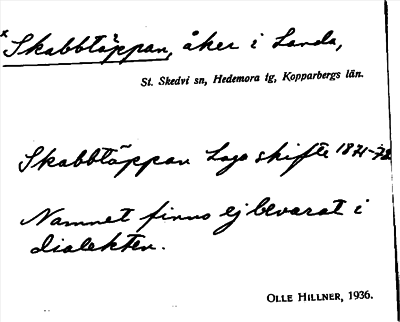 x Skabbtäppan, åker i Landa,
St. Skedvi sn, Hedemora tg, Kopparbergs län.
Skabbtäppan Laga skifte 1871-72
Namnet finns ej bevarat i
dialekten.
OLLE HILLNER, 1936.